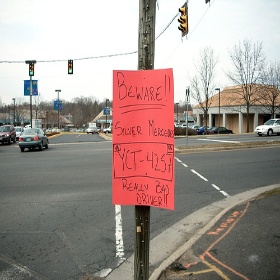 BEWARE!!
SILVER MERCEDES
YCT-4257
REALLY BAD
DRIVER!!